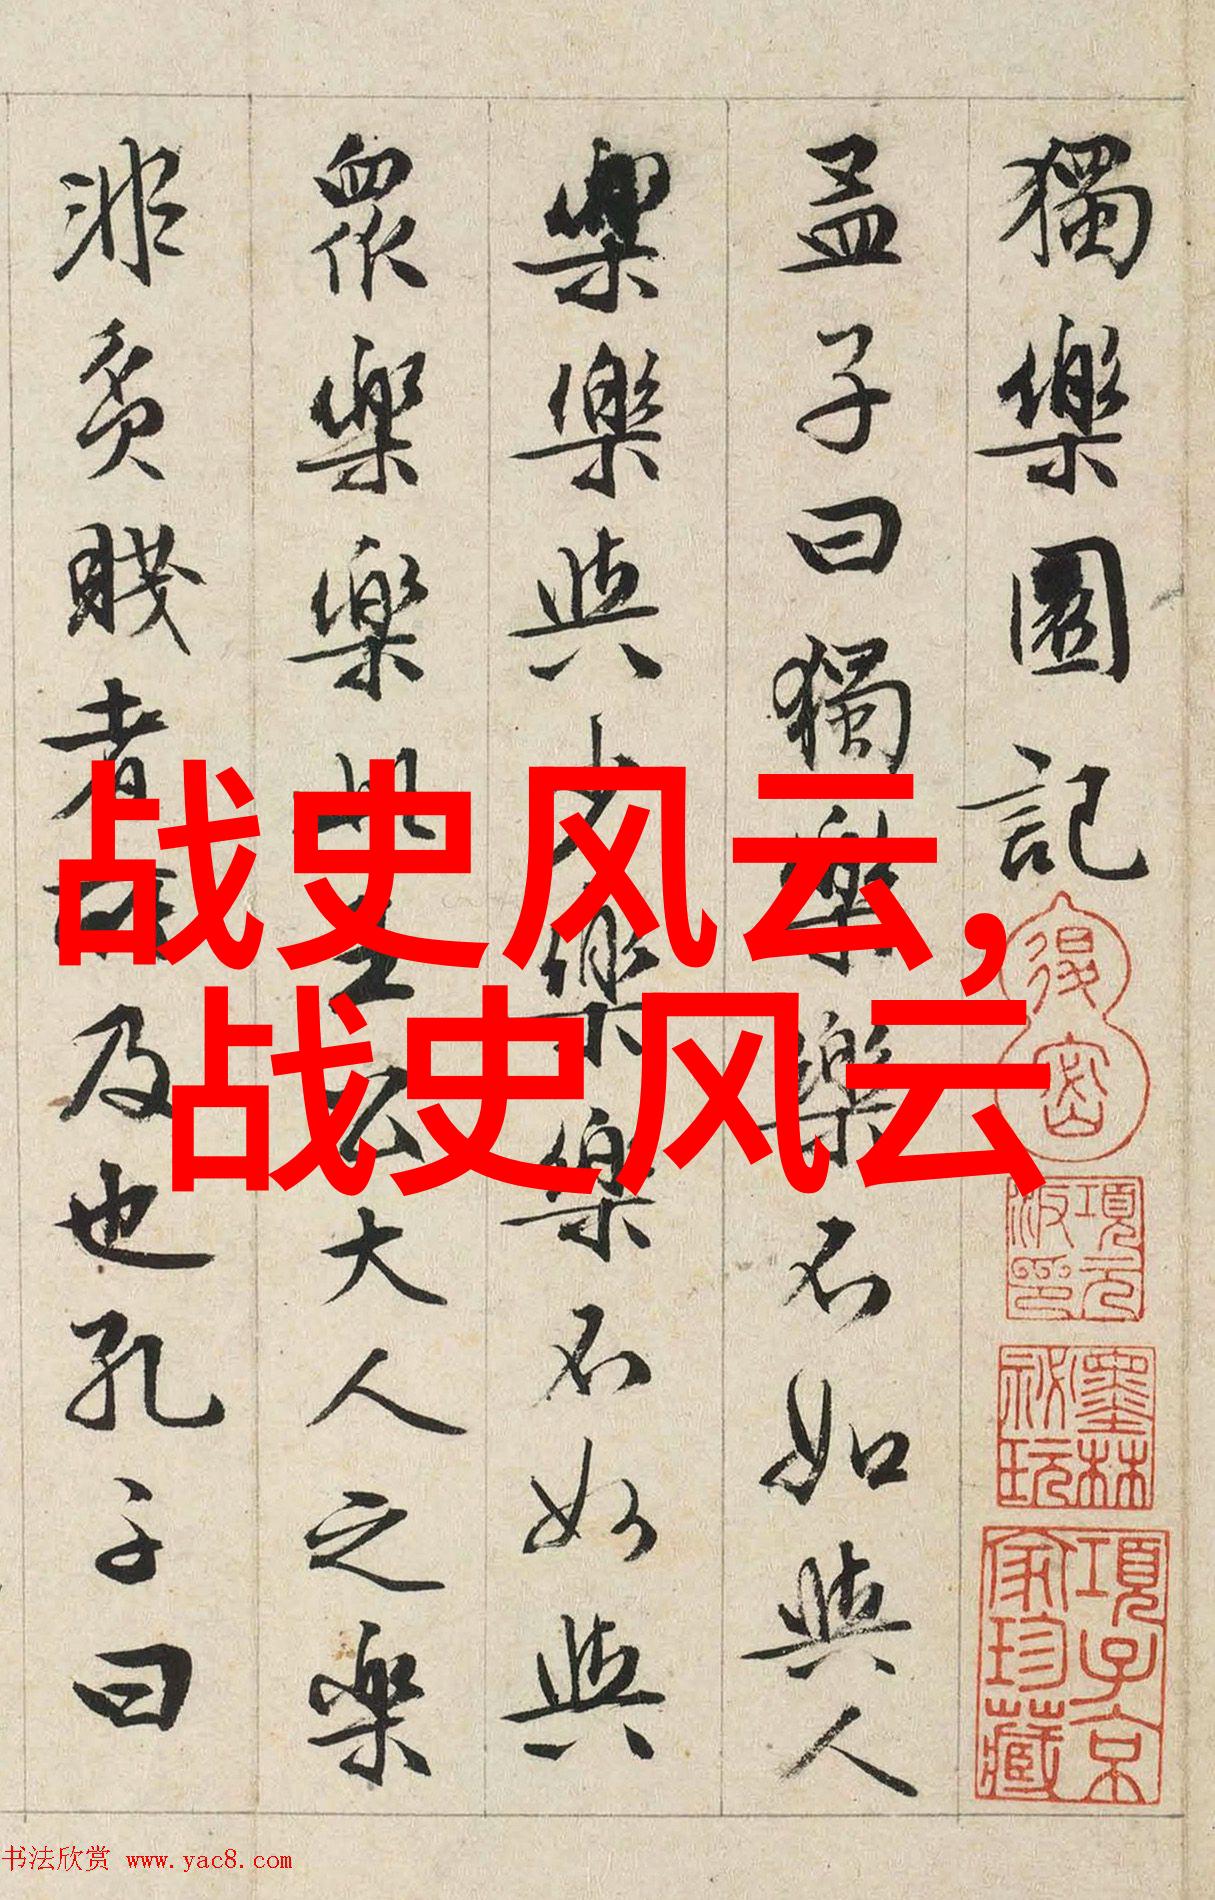 獨樂園記
孟子曰獨樂樂不如與人
樂樂與少樂樂不如與
眾樂樂此王公大人之樂
非貧賤者所及也孔子曰
战史风云,
战史风云
項元汴印
墨林秘玩
項子京家珍藏
书法欣赏 www.yac8.com